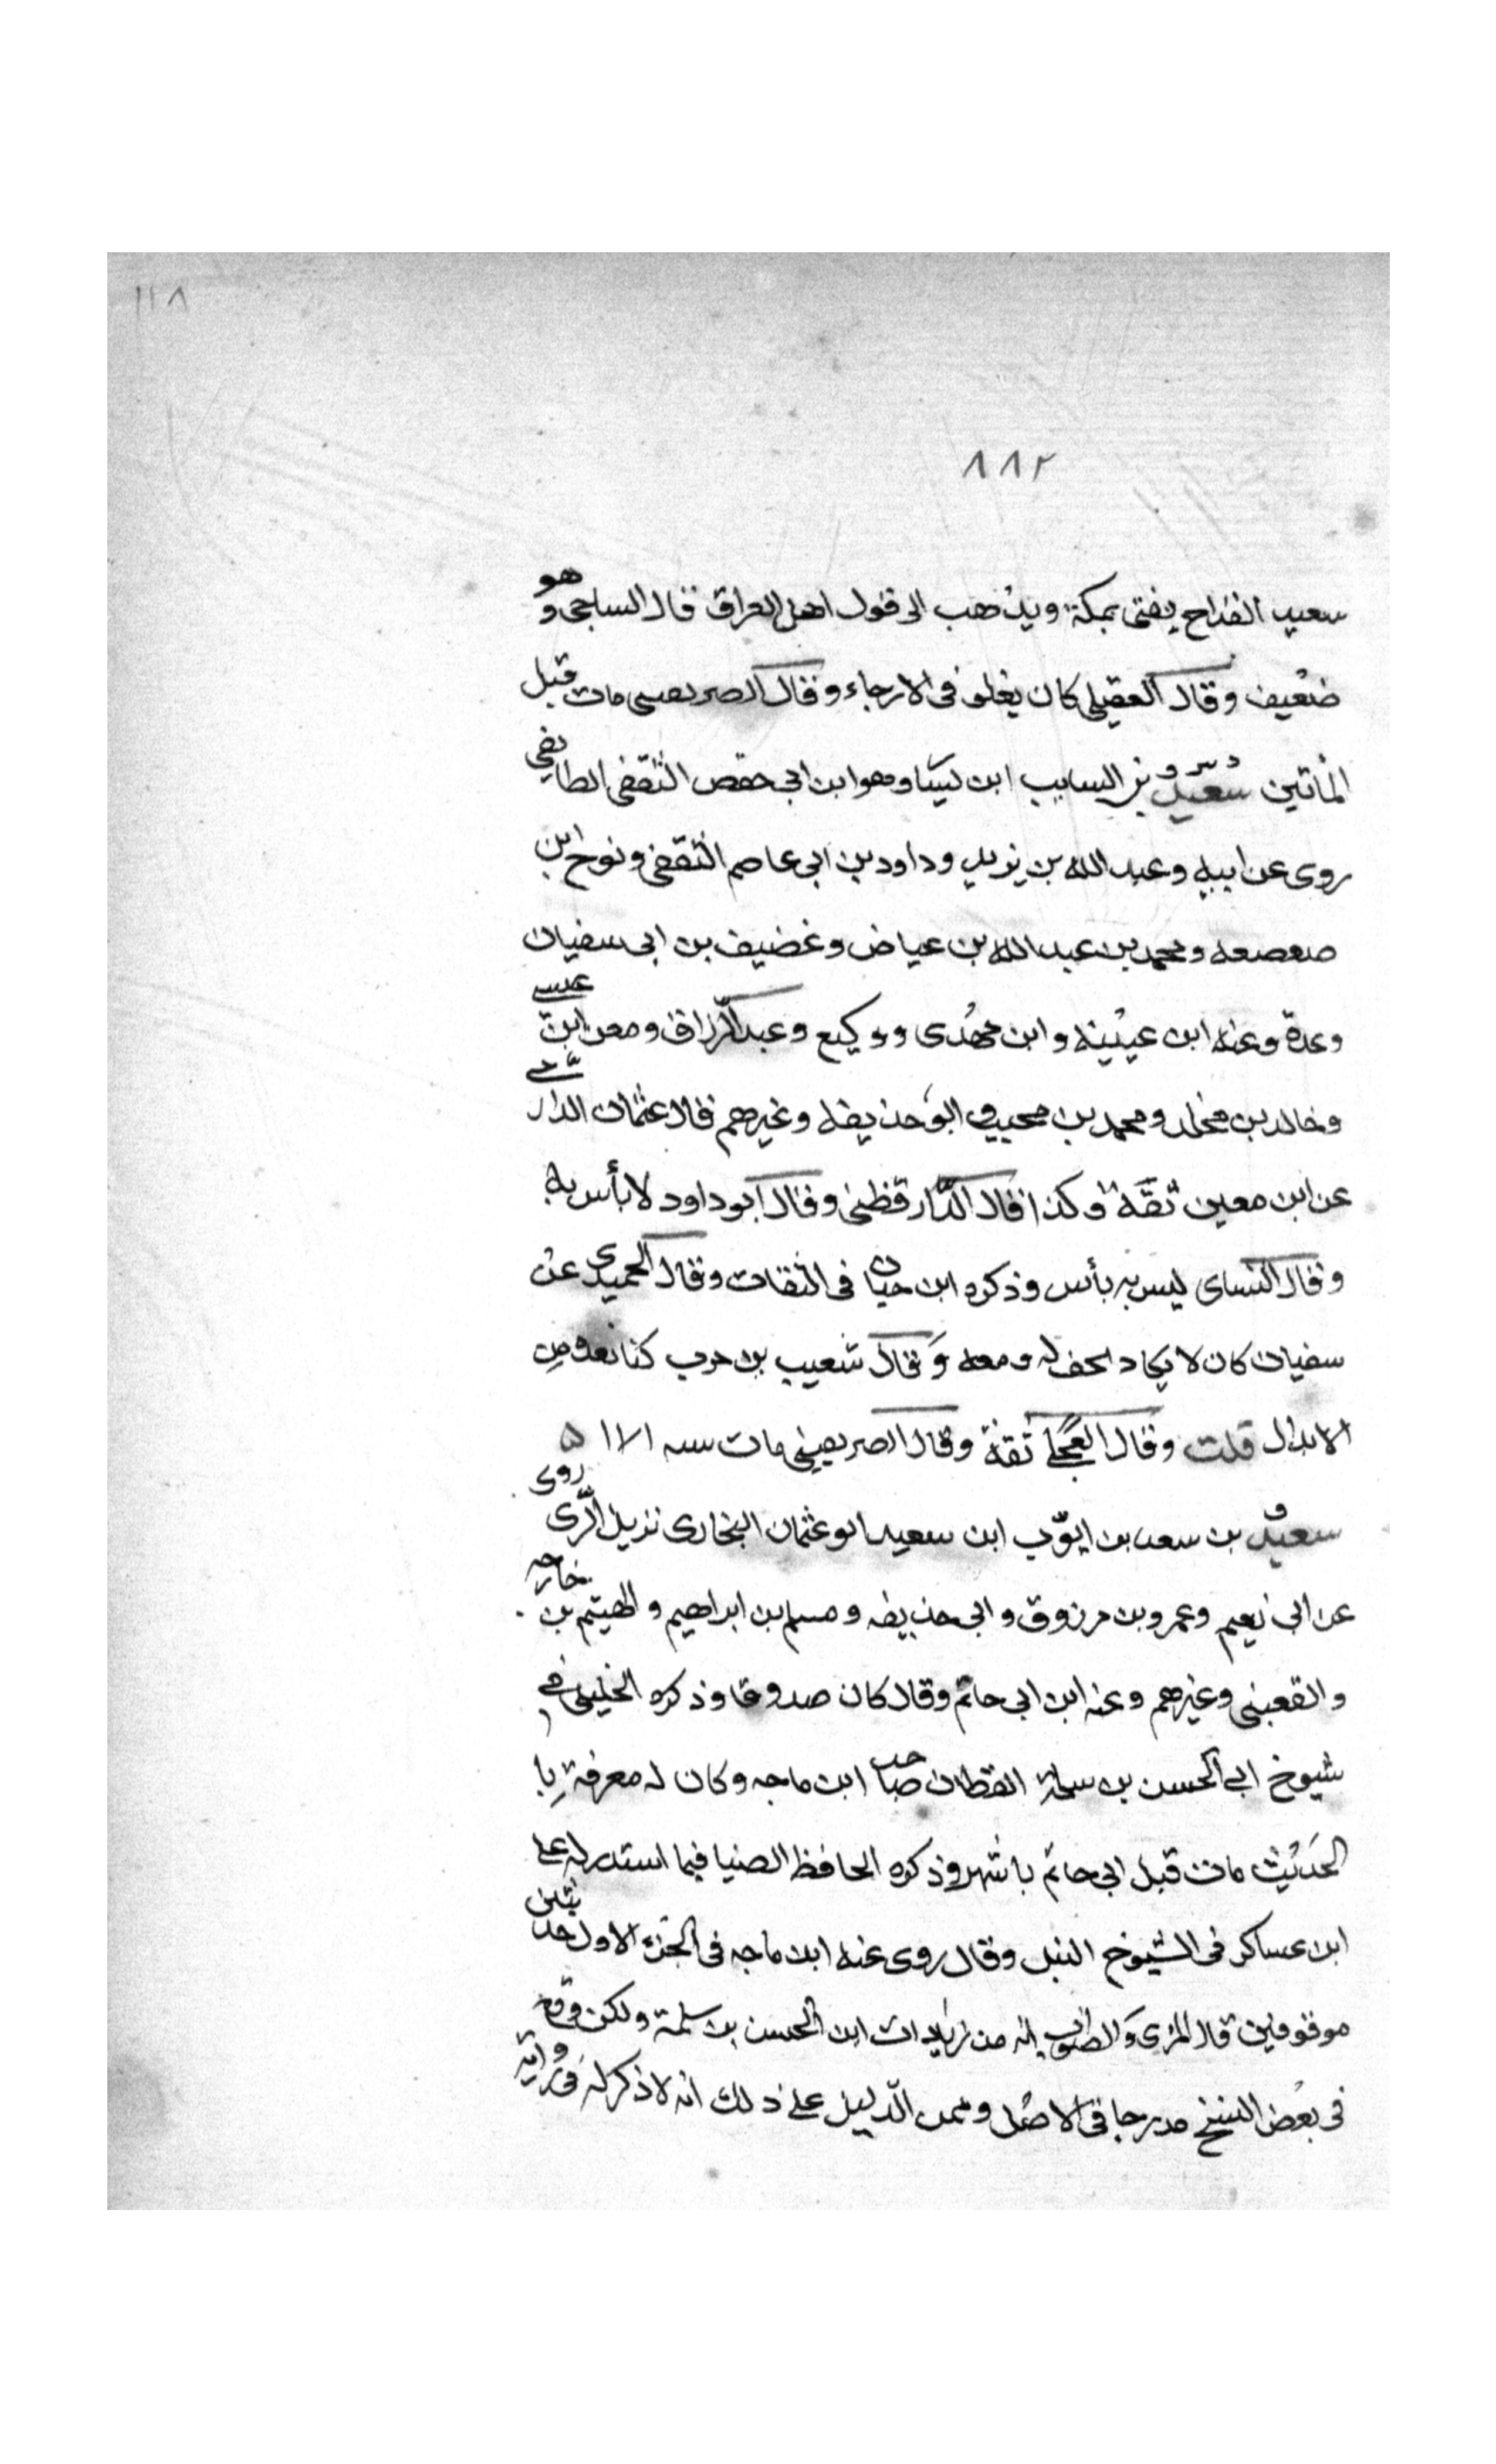 ١١٨
٨٨٢
سعيد القداح يفتى بمكة ويذهب الى قول اهل العراق قال الساجى وهو
ضعيف وقال العقيلى كان يغلو فى الارجاء وقال الصريفينى مات قبل
المأتين سعيد بن السايب ابن يسار وهو ابن ابى حفص الثقفى الطايفى
روى عن ابيه وعبد الله بن يزيد وداود بن ابى عاصم الثقفى ونوح ابن
صعصعه ومحمد بن عبد الله بن عياض وغضيف بن ابى سفيان
وعدة وعنه ابن عيينه وابن مهدى ووكيع وعبد الرزاق ومعن ابن عيسى
وخالد بن مخلد ومحمد بن محبب وابو حذيفه وغيرهم قال عثمان الدارمى
عن ابن معين ثقة وكذا قال الدارقطنى وقال ابو داود لا بأس به
وقال النساى ليس به بأس وذكره ابن حبان فى الثقات وقال الحميدى عن
سفيان كان لا يكاد يجف له دمعه وقال شعيب بن حرب كنا نعده من
الابدال قلت وقال العجلى ثقة وقال الصريفينى مات سنه ١٧١
سعيد بن سعد بن ايوب ابن سعيد ابو عثمان البخارى نزيل الرى روى
عن ابى نعيم وعمرو بن مرزوق وابى حذيفه ومسلم بن ابراهيم والهيثم بن خارجه
والقعبنى وغيرهم وعنه ابن ابى حاتم وقال كان صدوقا وذكره الخليلى فى
شيوخ ابى الحسن بن سلمة القطان صاحب ابن ماجه وكان له معرفة با
الحديث مات قبل ابى حاتم باشهر وذكره الحافظ الضيا فيما استدركه على
ابن عساكر فى الشيوخ النبل وقال روى عنه ابن ماجه فى الجزء الاول حديثين
موقوفين قال المزى والصواب انه من زيادات ابن الحسن بن سلمة ولكن وقع
فى بعض النسخ مدرجا فى الاصل ومن الدليل على ذلك انه لا ذكر له فى رواية